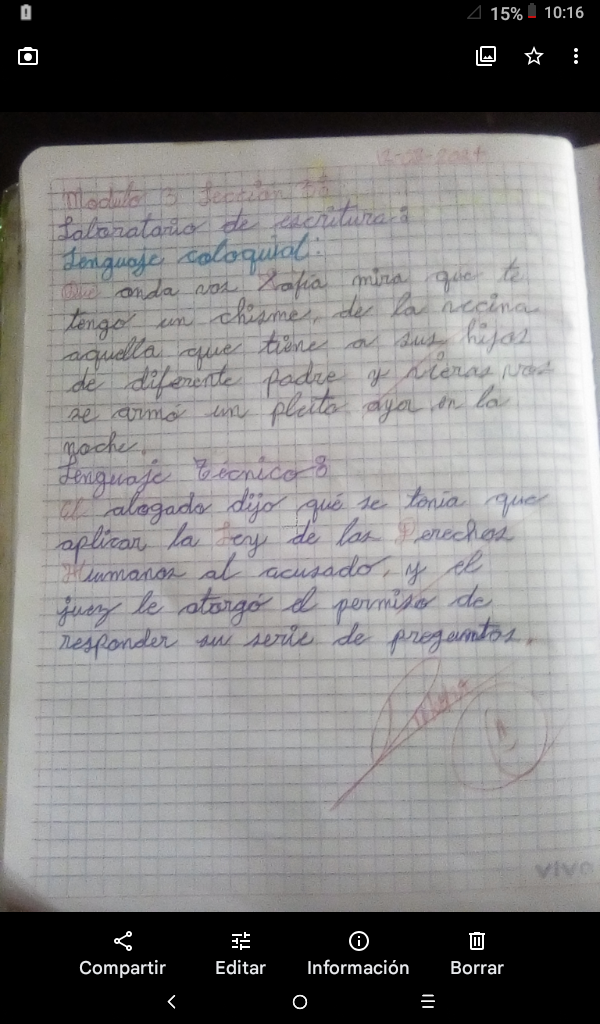 15% 10:16
12-02-2024
Modulo 3 Sección
Laboratorio de escritura:
Lenguaje coloquial:
Que onda vos Xofia mira que te
tengo un chisme, de la vecina
aquella que tiene a sus hijos
de diferente padre y vieras vos
se armó un pleito ayer en la
noche.
Lenguaje técnico:
El abogado dijo que se tonia que
aplicar la Ley de las Derechos
Humanos al acusado, y el
juez le otorgó el permiso de
responder su serie de preguntas.
vivo
Compartir Editar Información Borrar